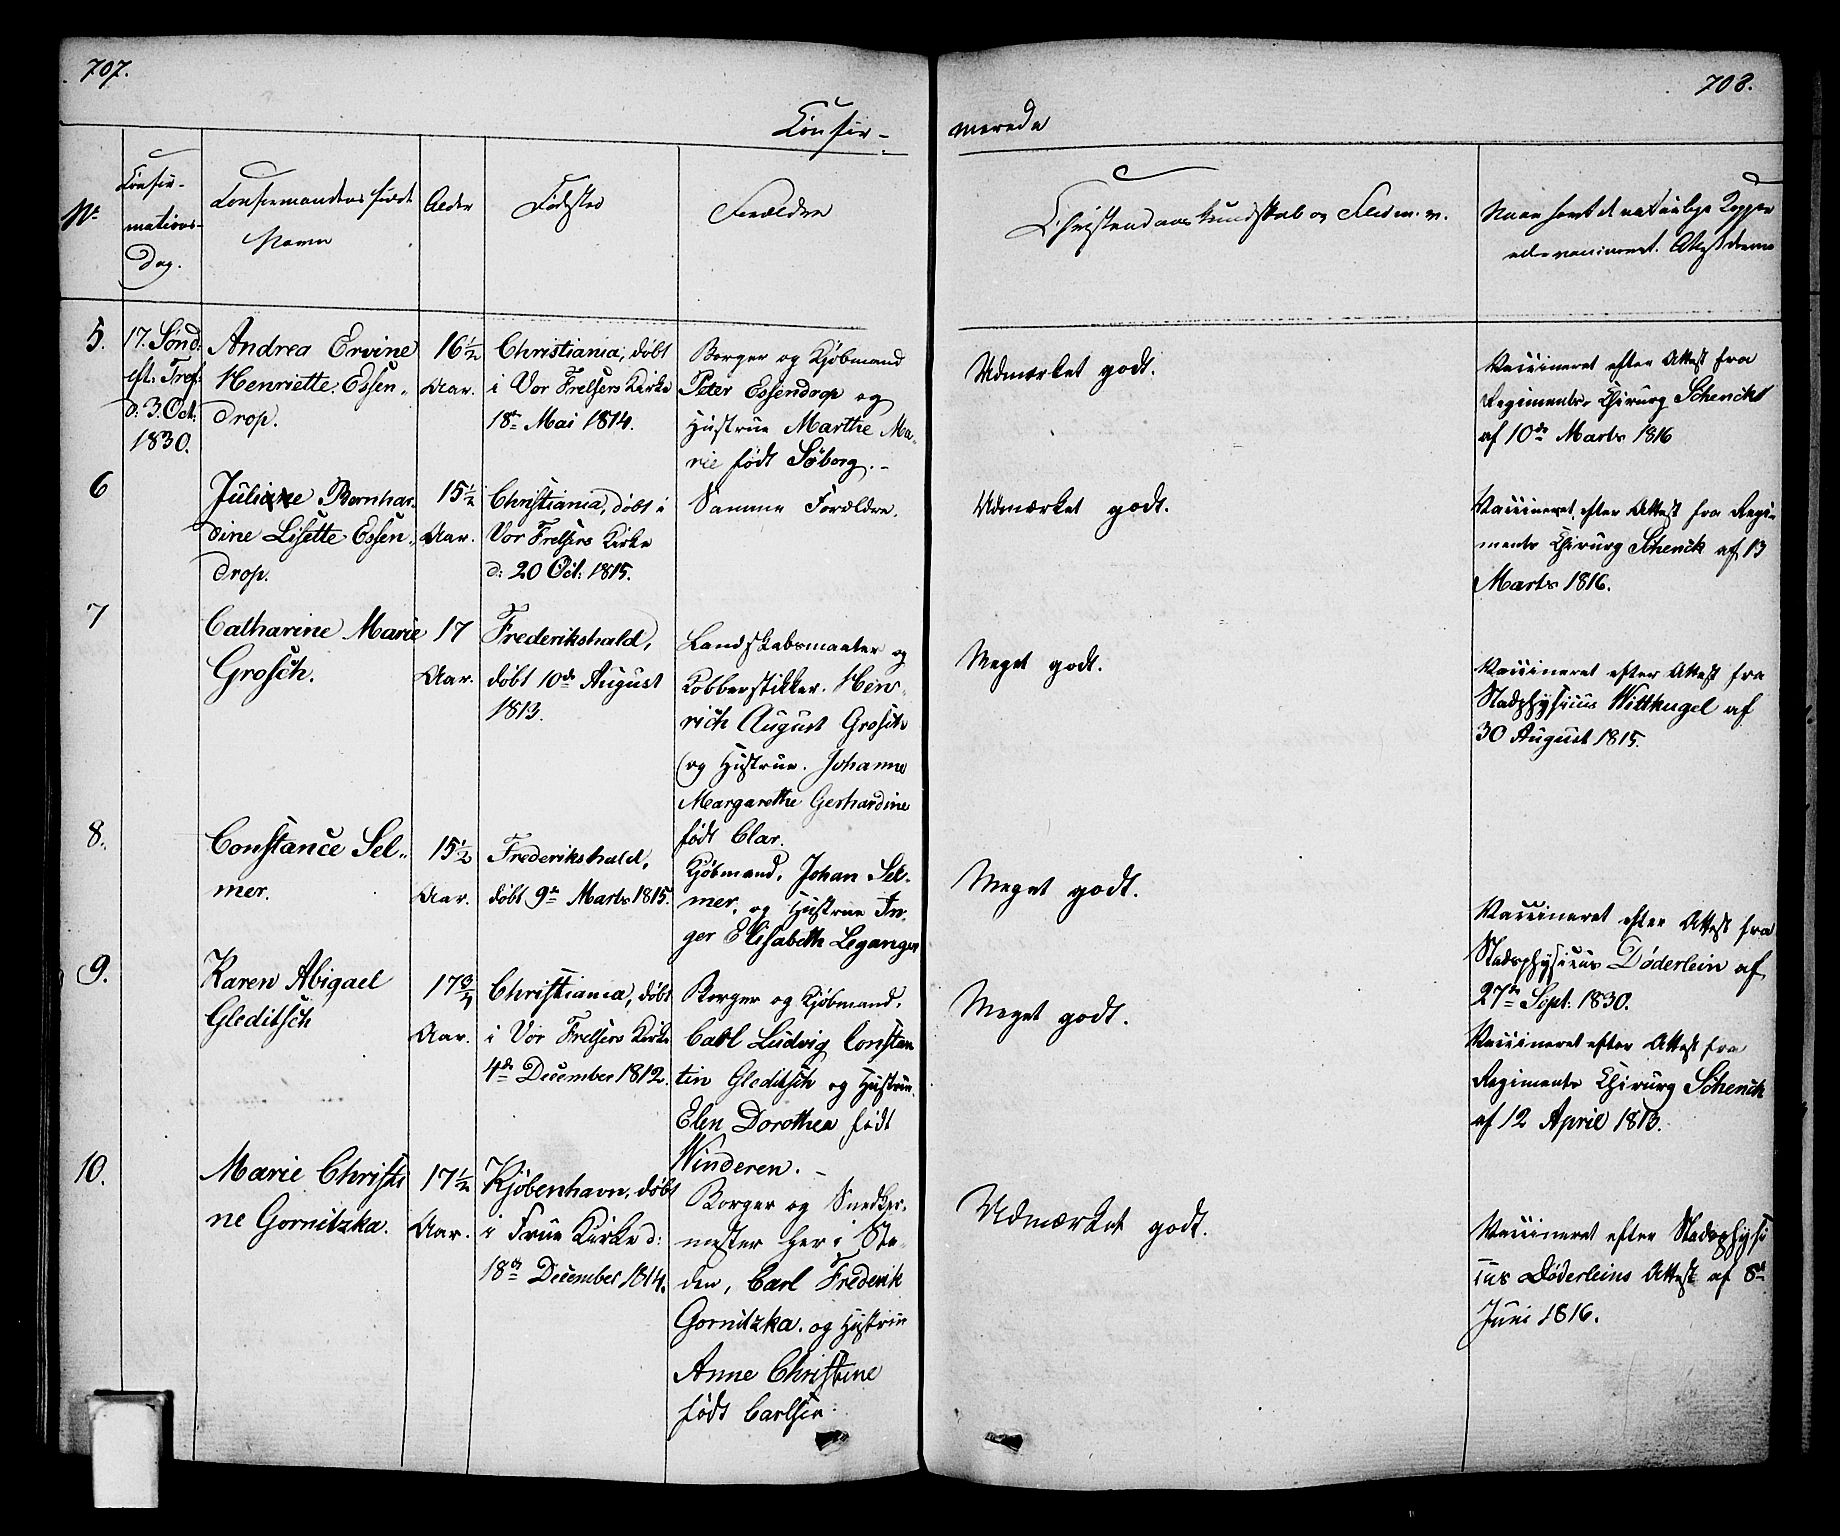 707.
708.
Confir-
merede
No
Confir-
mations-
Dag.
Confirmandens fulde
Navn
Alder
Fødested
Forældre
Christendomskundskab og Flid m. v.
Naar havt de naturlige Kopper
eller vaccineret. Attest derom
5.
17. Sønd.
eft. Tref.
d: 3. Oct:
1830.
Andrea Ervine
Henriette Essen-
drop.
16½
Aar.
Christiania, døbt
i Vor Frelsers Kirke
18de Mai 1814.
Borger og Kjøbmand
Peter Essendrop og
Hustrue Marthe Ma-
rie født Søborg.-
Udmærket godt.
Vaccineret efter Attest fra
Regiments-Chirurg Schenckt
af 10de Marts 1816
6
Juliane Bernhar-
dine Lisette Essen-
drop.
15½
Aar.
Christiania, døbt i
Vor Frelsers Kirke
d: 20 Oct: 1815.
Samme Forældre.
Udmærket godt.
Vaccineret efter Attest fra Regi-
ments Chirurg Schenck af 13
Marts 1816.
7
Catharine Marie
Grosch.
17
Aar.
Frederikshald,
døbt 10de August
1813.
Landskabsmaaler og
Kobberstikker. Hen-
rich August Grosch
og Hustrue. Johanne
Margarethe Gerhardine
født Clar.
Meget godt.
Vaccineret efter Attest fra
Stadphysicus Wittkugel af
30 August 1815.
8.
Constance Sel-
mer.
15½
Aar.
Frederikshald,
døbt 9de Marts 1815.
Kjøbmand, Johan Sel-
mer, og Hustrue In-
ger Elisabeth Leganger
Meget godt.
Vaccineret efter Attest fra
Stadsphysicus Døderlein af
27de Sept: 1830.
9.
Karen Abigael
Gleditsch
17¾
Aar.
Christiania, døbt
i Vor Frelsers Kirke
4de December 1812.
Borger og Kjøbmand,
Carl Ludvig Constan
tin Gleditsch og Hustrue
Elen Dorothea født
Winderen. -
Meget godt.
Vaccineret efter Attest fra
Regiments Chirurg Schenck
af 12 April 1813.
10.
Marie Christi
ne Gornitzka.
17½
Aar.
Kjøbenhavn, døbt
i Frue Kirke d:
18de December 1814.
Borger og Snedker-
mester her i Sta-
den, Carl Frederik
Gornitzka. og Hustrue
Anne Christine
født Carlsen.
Udmærket godt.
Vaccineret efter Stadsphysi
cus Døderleins Attest af 8de
Juni 1816.